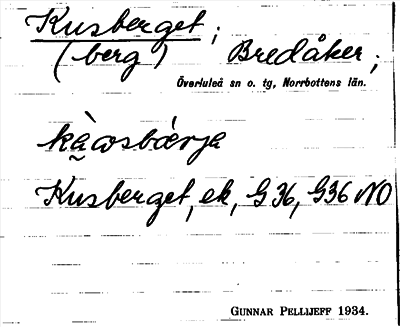 Kusberget;
(berg) Bredåker;
Överluleå sn o. tg, Norrbottens län.
Kusberget, ek, G36, G36 NO
GUNNAR PELLIJEFF 1934.